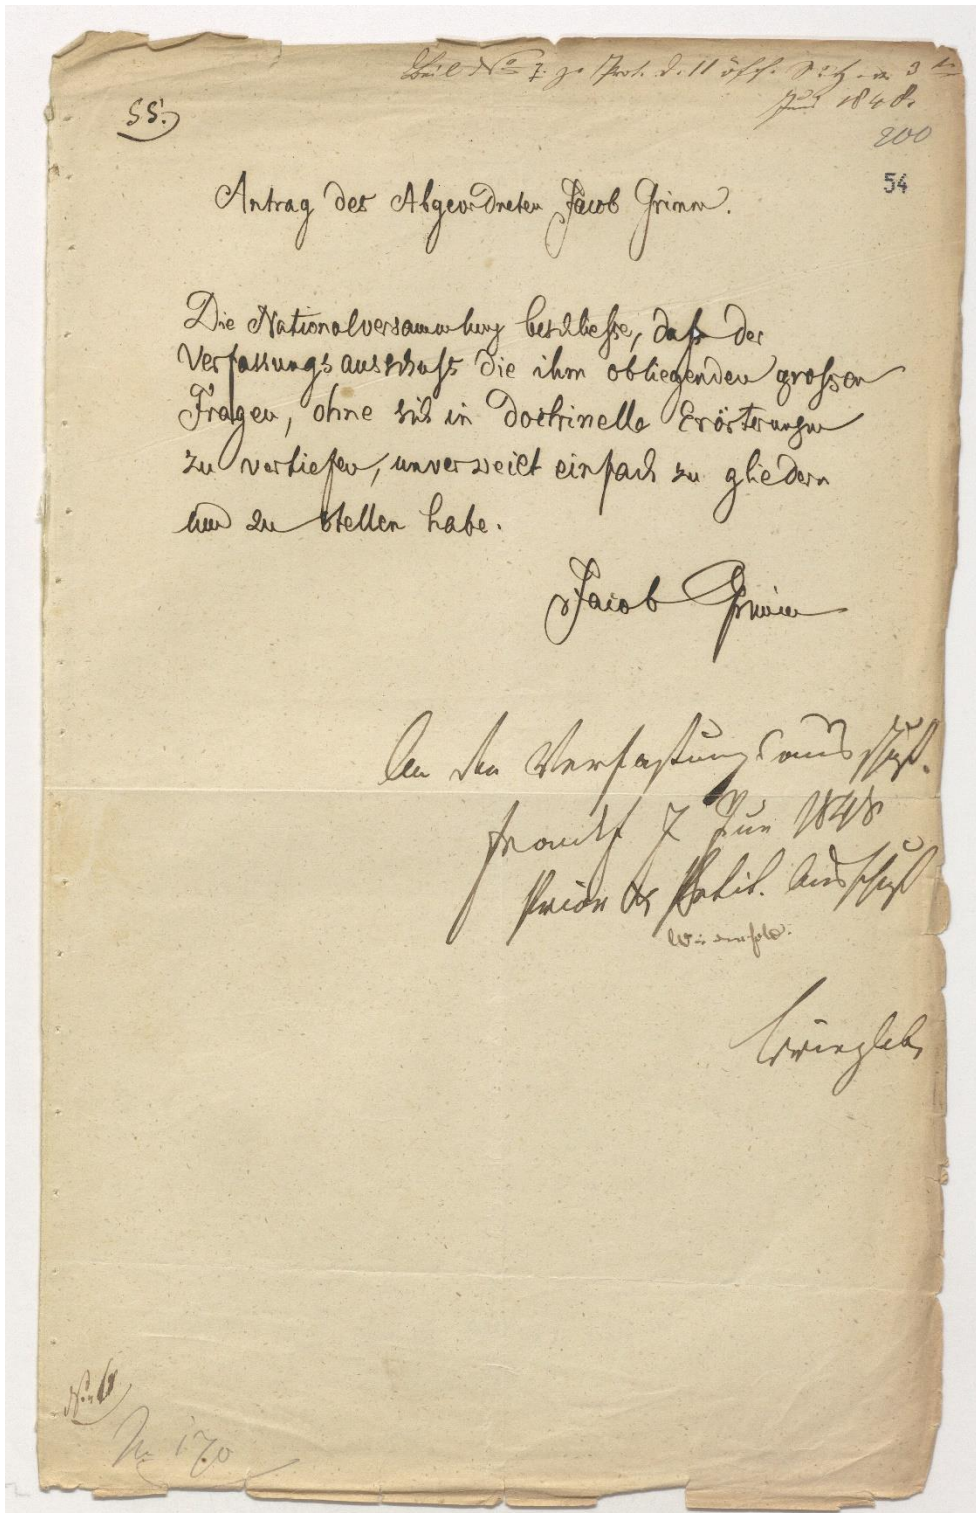 Beil No 7. z. Prot. d. 11 öff. Sitz. v. 3
Juni 1848.
200
55.
54
Antrag des Abgeordneten Jacob Grimm.
Die Nationalversammlung beschliesse, dass der
Verfassungsausschuss die ihm obliegenden grossen
Fragen, ohne sich in doctrinelle Erörterungen
zu vertiefen, unverweilt einfach zu gliedern
und zu stellen habe.
Jacob Grimm
An den Verfassungsausschuß.
Frankf 7 Jun 1848
Prior & Petit. Ausschuß
Briegleb
No 170